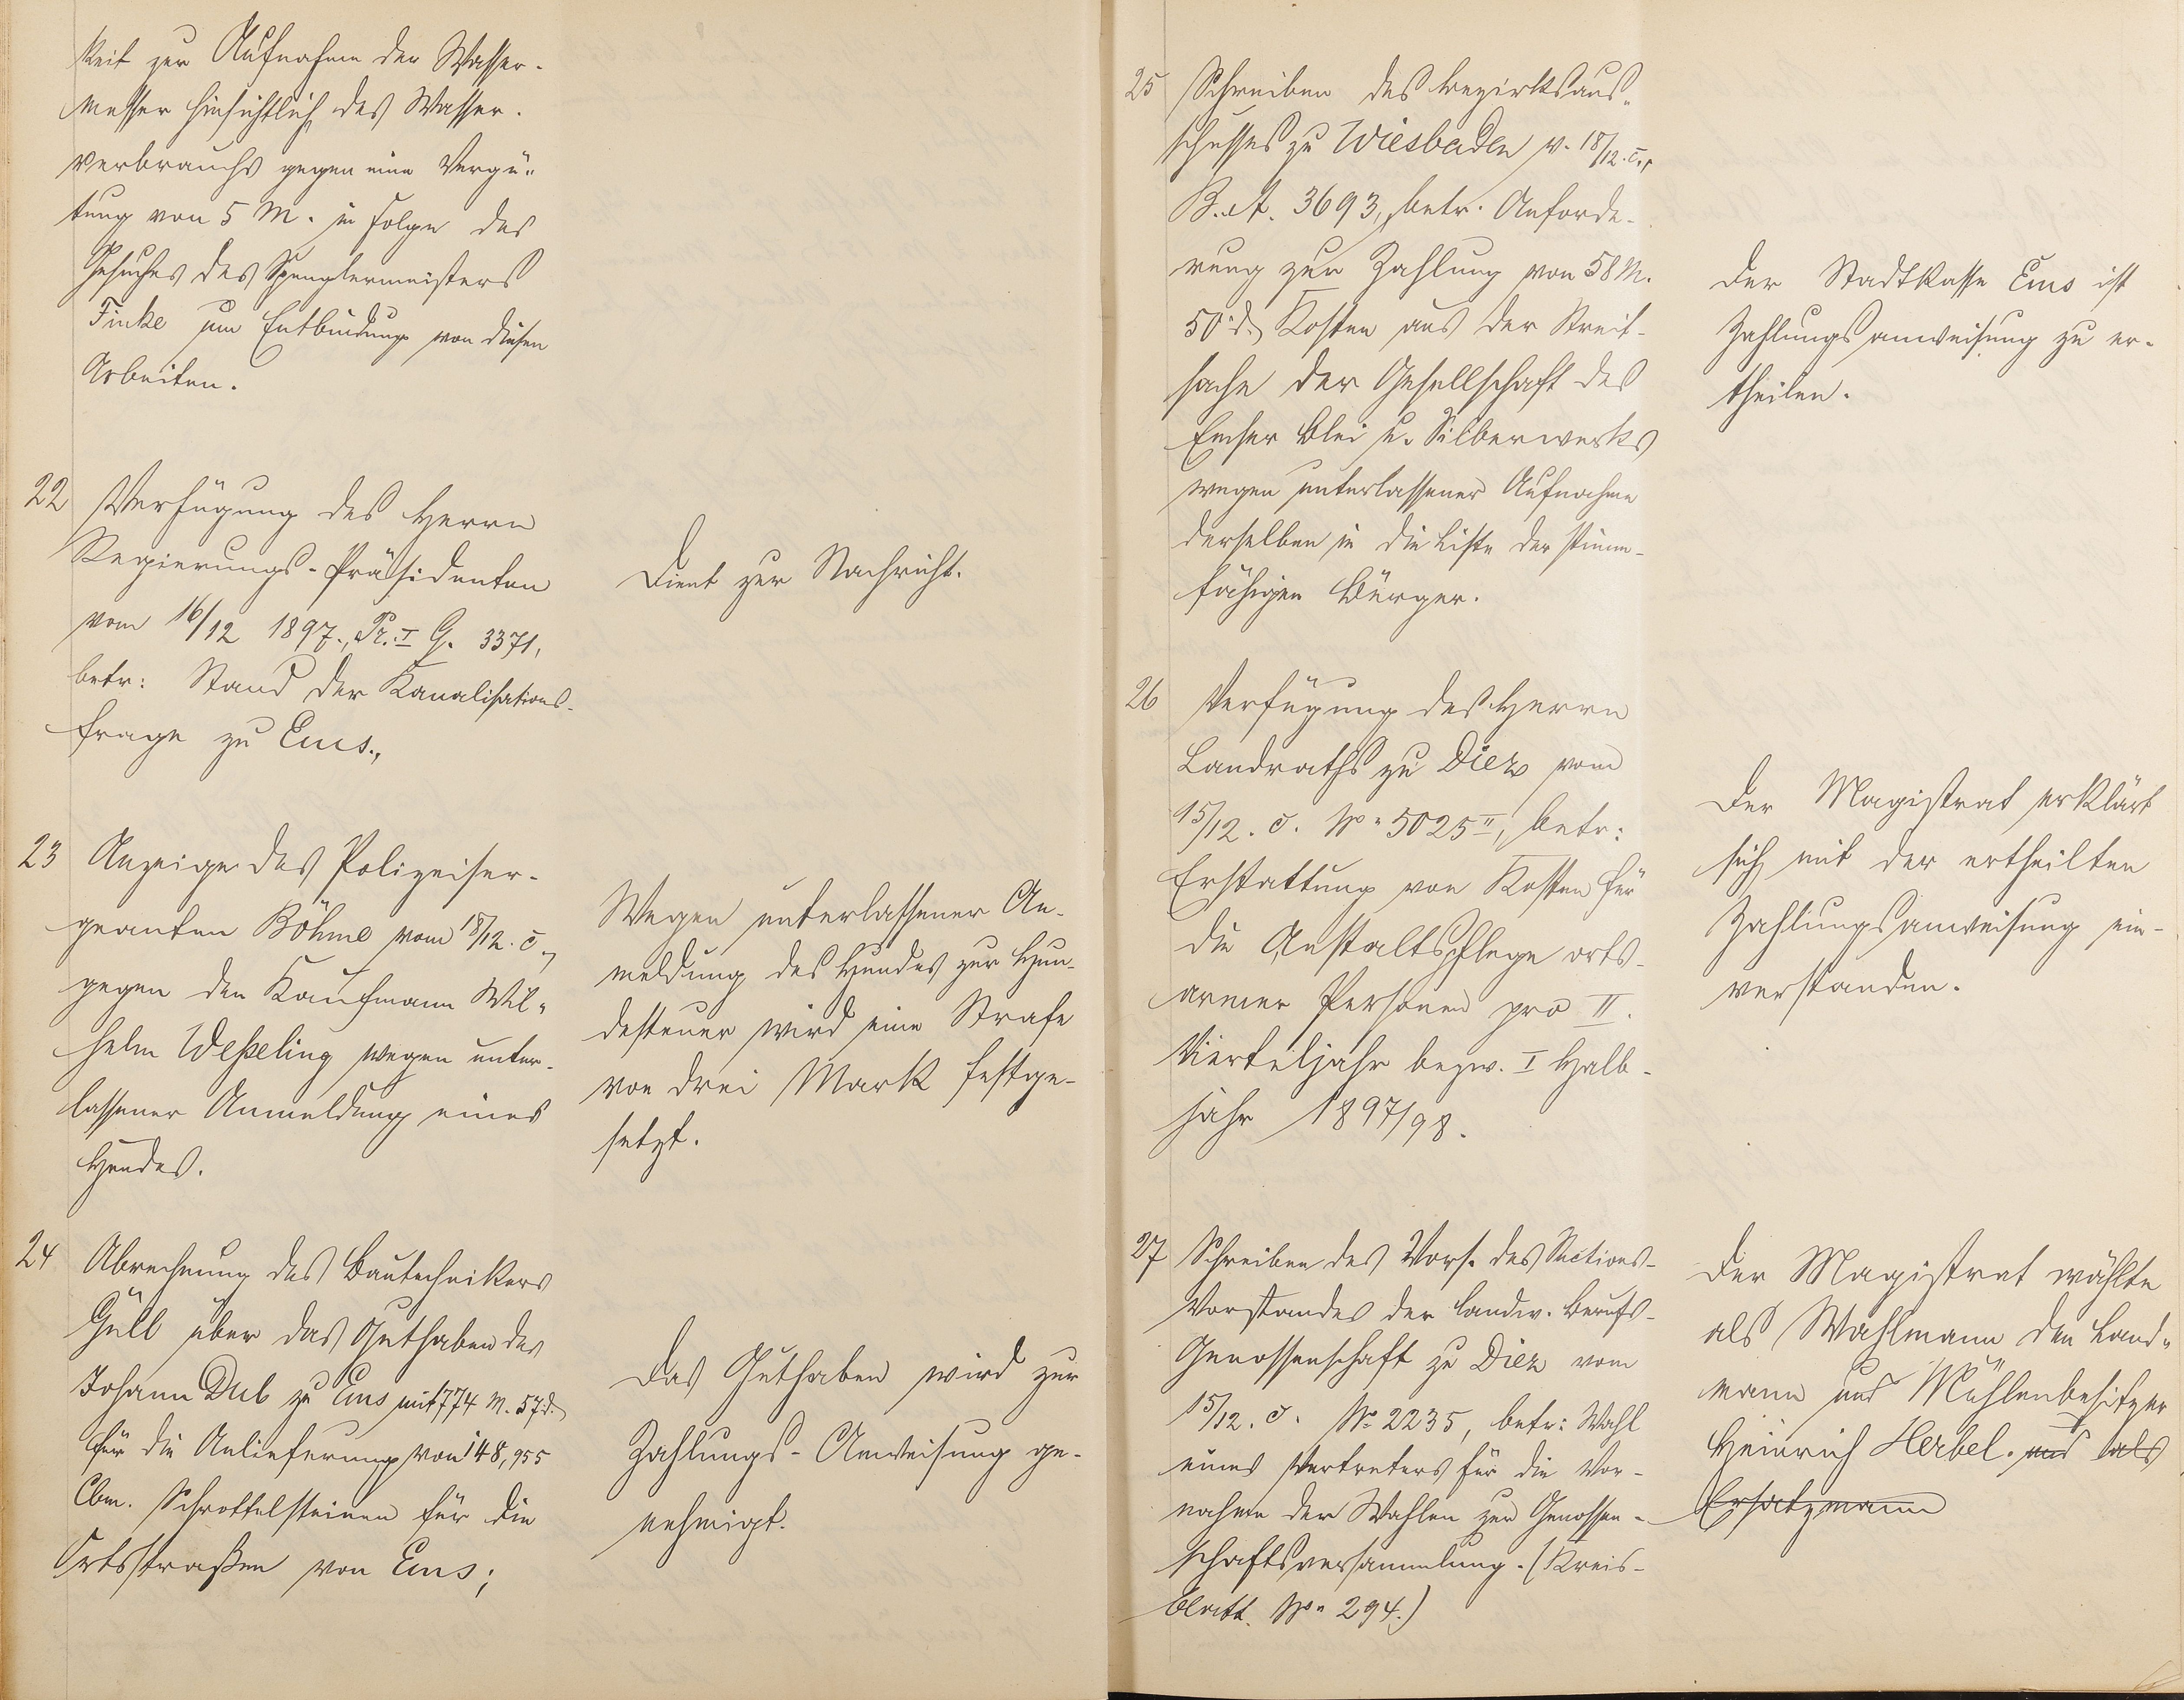 keit zur Aufnahme der Wasser-
messer hinsichtlich des Wasser-
verbrauchs gegen eine Vergü-
tung von 5 M. in Folge des
Gesuches des Spenglermeisters
Finke um Entbindung von diesen
Arbeiten.
22 Verfügung des Herrn
Regierungs-Präsidenten
vom 16/12 1897., Pr. I G. 3371,
betr: Stand der Kanalisations-
frage zu Ems.,
Dient zur Nachricht.
23 Anzeige des Polizeiser-
geanten Böhme vom 18/12. c.,
gegen den Kaufmann Wil-
helm Weßeling wegen unter-
lassener Anmeldung eines
Hundes.
Wegen unterlassener An-
meldung des Hundes zur Hun-
desteuer wird eine Strafe
von drei Mark festge-
setzt.
24 Abrechnung des Bautechnikers
Güll über das Guthaben des
Johann Dub zu Ems mit 774 M. 57 d.
für die Anlieferung von 148,955
Cbm. Schrottelsteinen für die
Ortsstraßen von Ems;
Das Guthaben wird zur
Zahlungs-Anweisung ge-
nehmigt.
25 Schreiben des Bezirksaus-
schusses zu Wiesbaden v. 18/12. c.,
B. A. 3693, betr. Anforde-
rung zur Zahlung von 58 M.
50 d. Kosten aus der Streit-
sache der Gesellschaft des
Emser Blei u. Silberwerks
wegen unterlassener Aufnahme
derselben in die Liste der stimm-
fähigen Bürger.
Der Stadtkasse Ems ist
Zahlungsanweisung zu er-
theilen.
26 Verfügung des Herrn
Landraths zu Diez vom
15/12. c. No 5025 II, betr:
Erstattung von Kosten für
die Anstaltspflege orts-
armer Personen pro II.
Vierteljahr bezw. I Halb-
jahr 1897/98.
Der Magistrat erklärt
sich mit der ertheilten
Zahlungsanweisung ein-
verstanden.
27 Schreiben des Vors. des Sections-
Vorstandes der landw. Berufs-
Genossenschaft zu Diez vom
15/12. c. No 2235, betr: Wahl
eines Vertreters für die Vor-
nahme der Wahlen zur Genossen-
schaftsversammlung. (Kreis-
blatt No 294.)
Der Magistrat wählte
als Wahlmann den Land-
mann und Mühlenbesitzer
Heinrich Herbel. und als
Ersatzmann